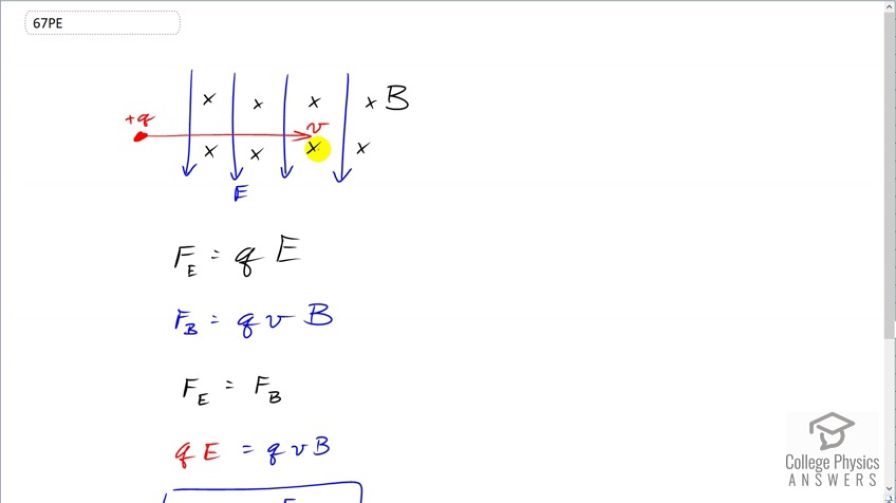 67PE
x x x x B
+q v
x x x x
E
F_E = q E
F_B = q v B
F_E = F_B
q E = q v B
College Physics
ANSWERS